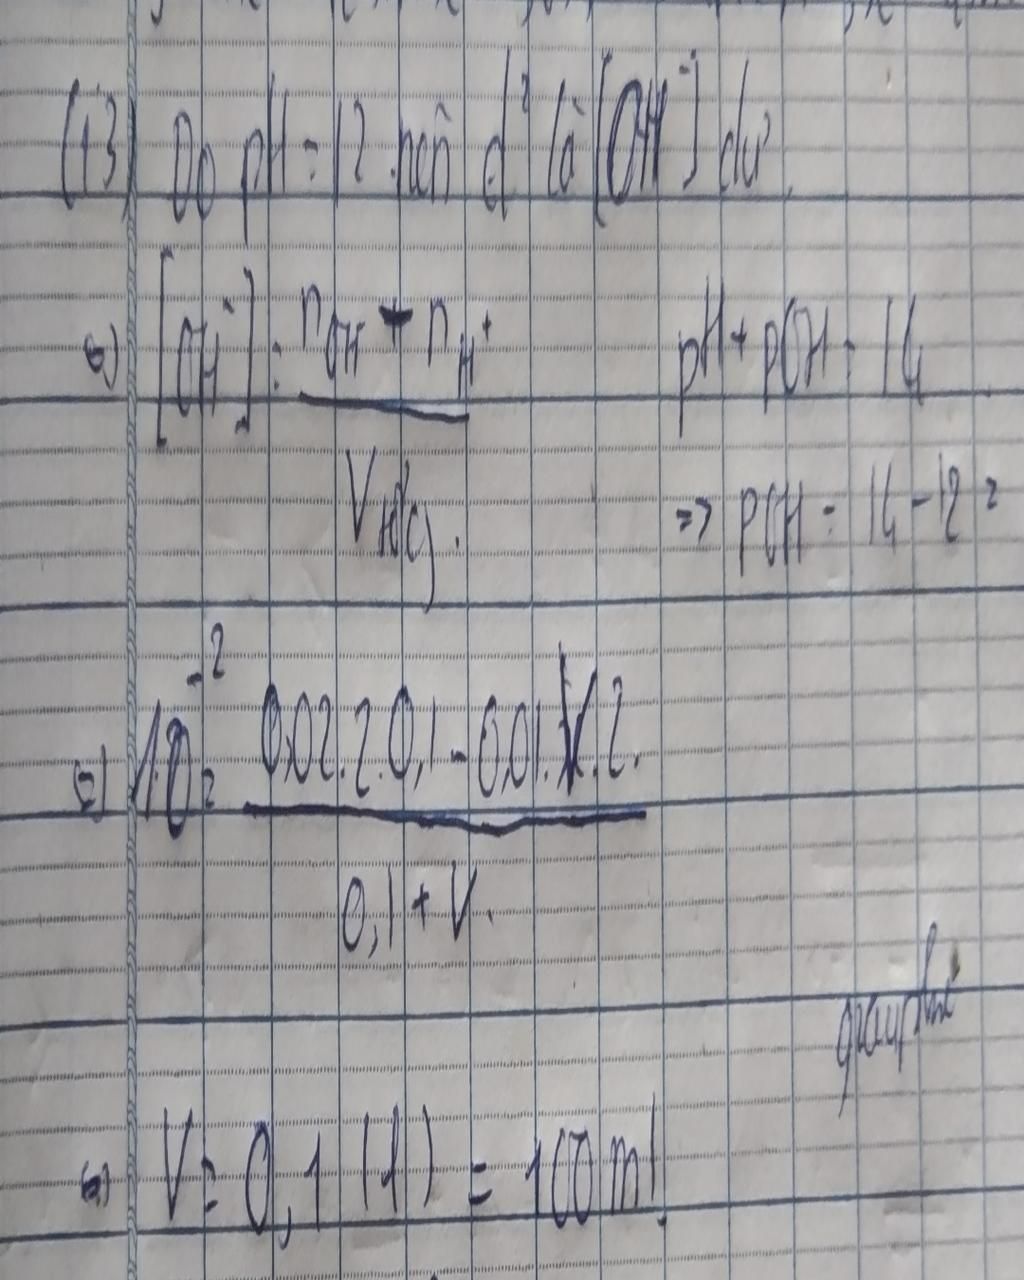 (13) Do pH = 12 nên d² là [OH⁻] dư
=) [OH⁻] = nOH + nH⁺ pH + pOH = 14
V => POH = 14 - 12 =
=) 10⁻² = 0,02.2.0,1 - 0,01.V.2.
0,1 + V.
=) V = 0,1 (l) = 100 ml